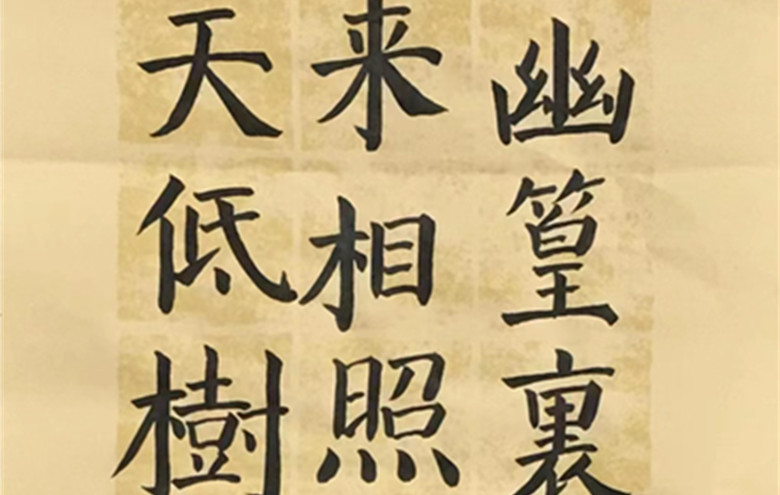 幽篁裏
来相照
天低樹